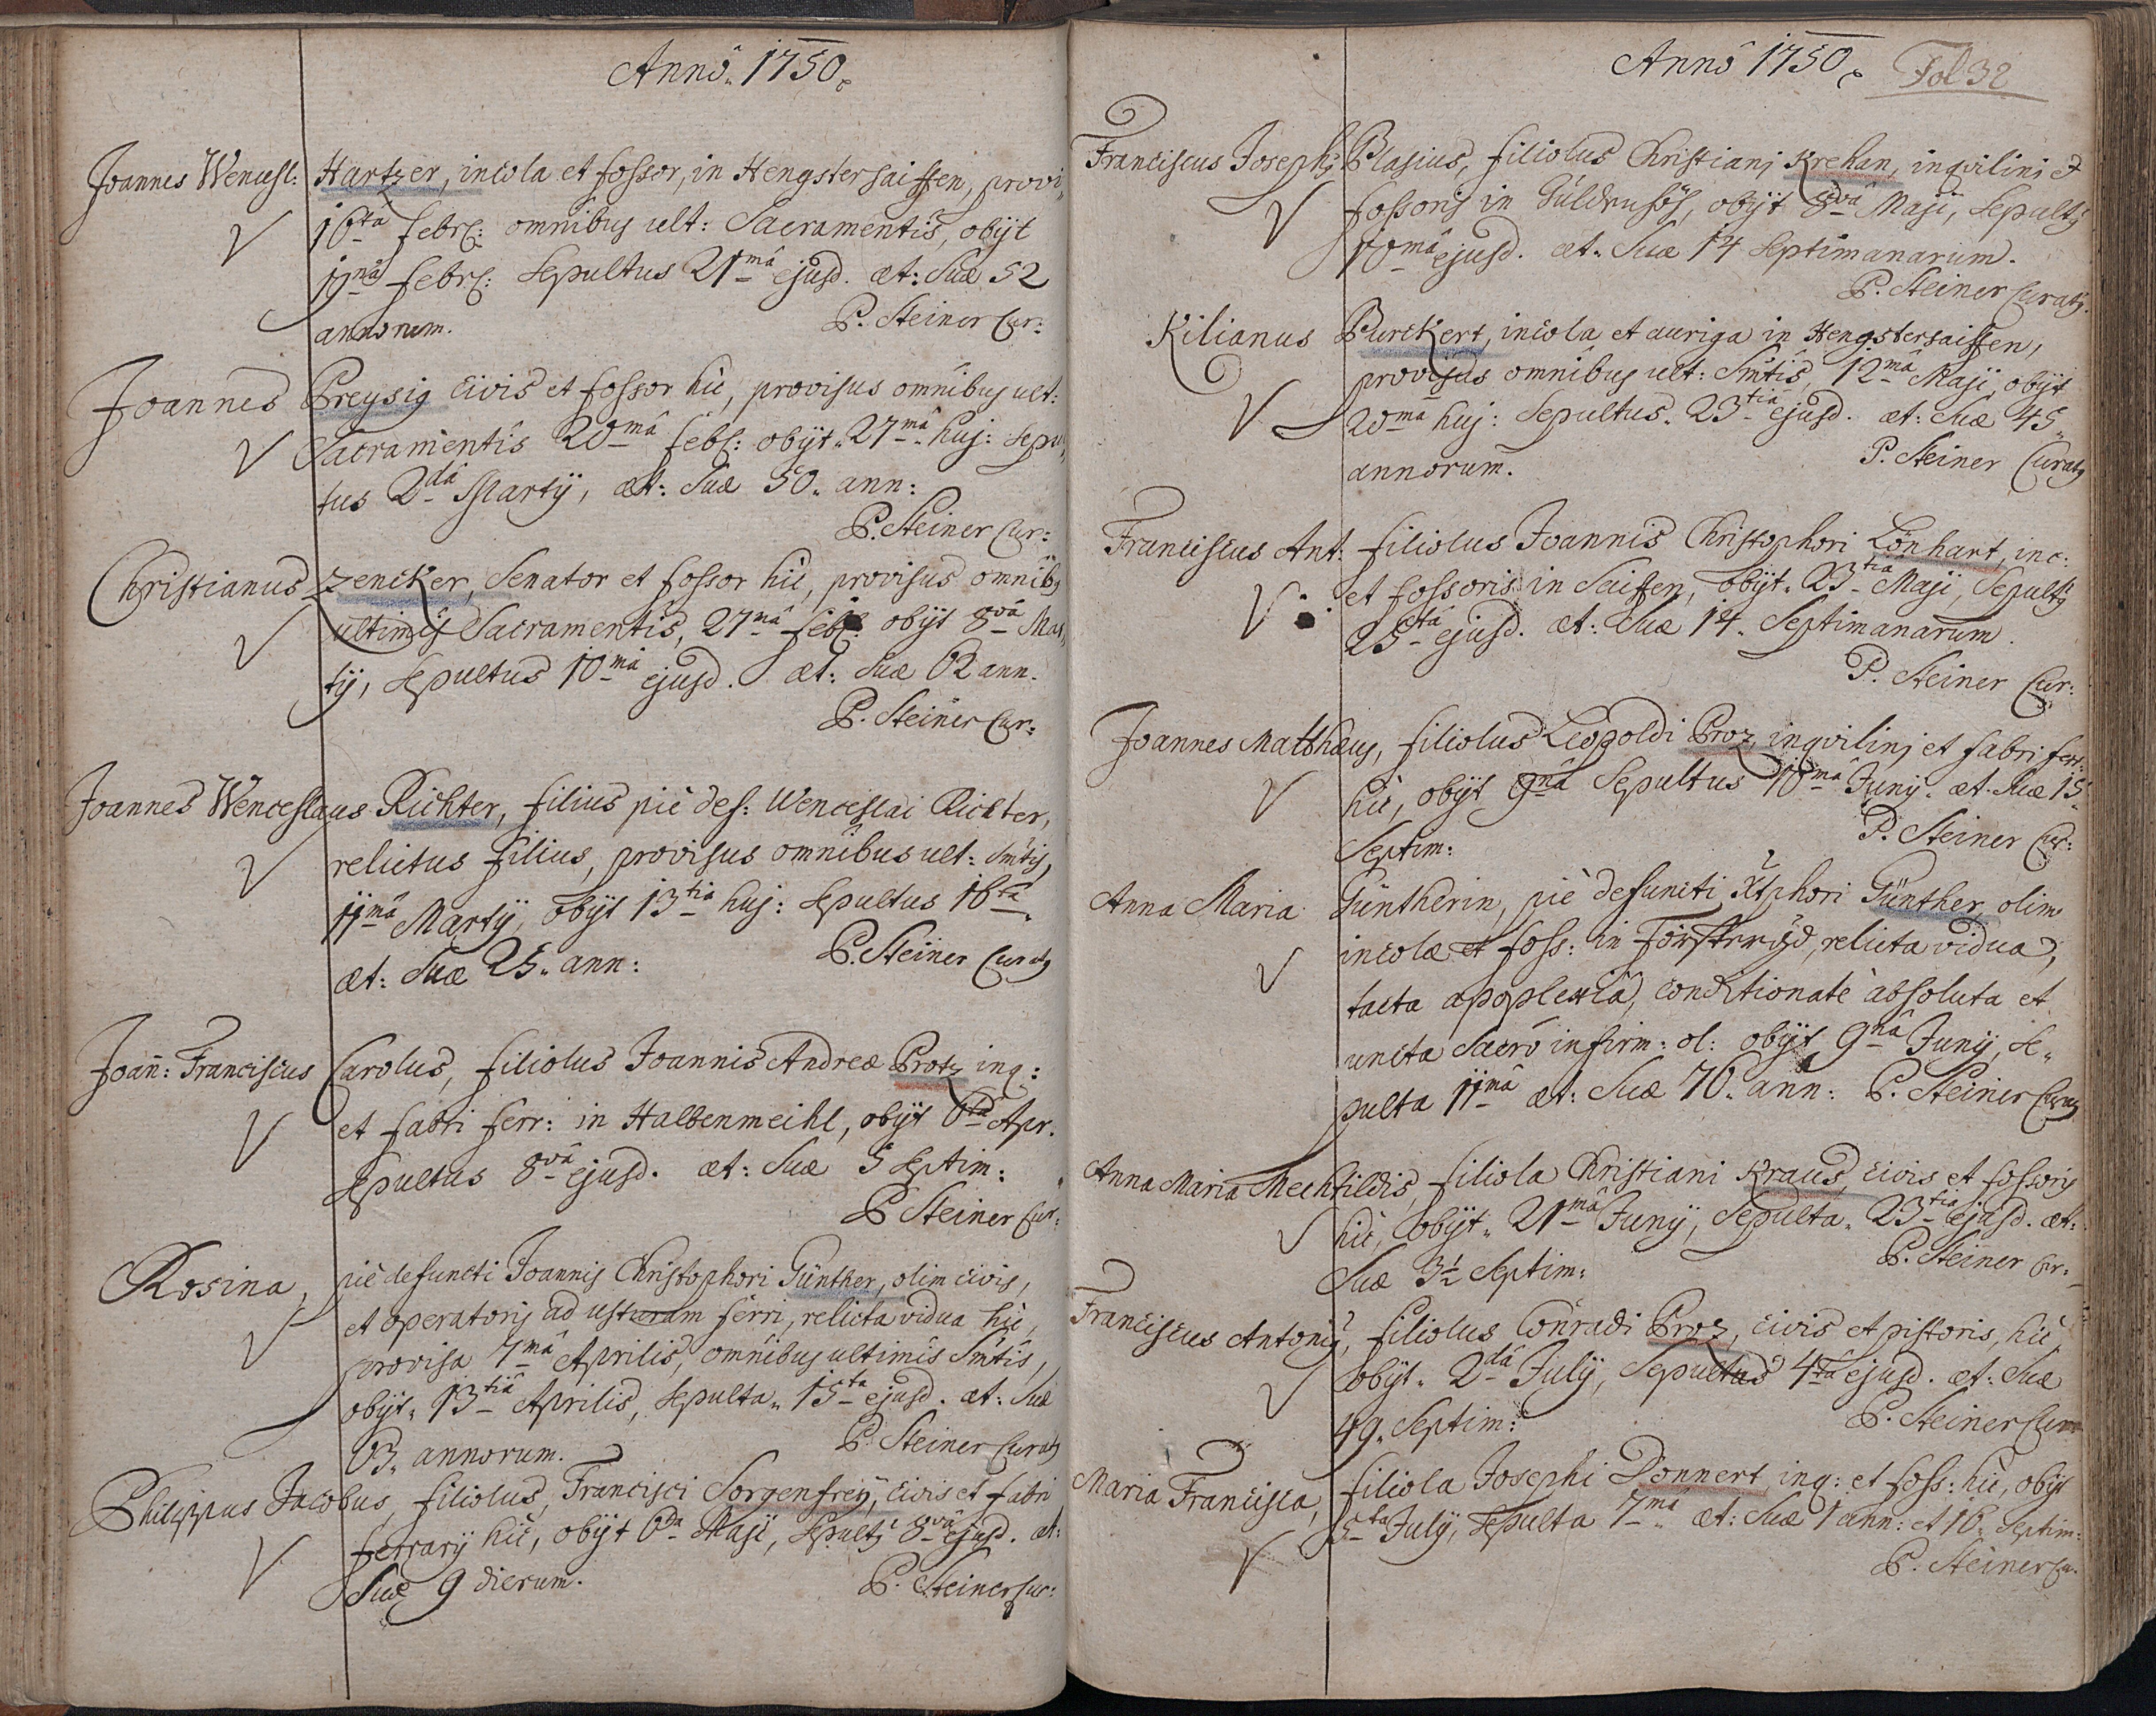 Annô. 1750.
Joannes Wencesl: Hartzer, incola et fossor, in Hengstersaiffen, provi,,
16ta febr: omnibus ult: Sacramentis, obijt
19nâ febr: Sepultus 21mâ ejusd. æt: Suæ 52
annorum. P. Steiner Cur:
Joannes Preysig Civis et fossor hic, provisus omnibus ult:
Sacramentis 20mâ feb: obijt. 27mâ huj: Sepul,,
tus 2dâ Martij, æt: Suæ 50. ann:
P. Steiner Cur:
Christianus Zencker, Senator et fossor hic, provisus omnibs
ultimis Sacramentis, 27mâ feb: obijt 8vâ Mar,,
tij, Sepultus 10mâ ejusd. æt: Suæ 62 ann.
P. Steiner Cur:
Joannes Wenceslaus Richter, filius piè def: Wenceslai Richter,
relictus filius, provisus omnibus ult: Smtis,
11mâ Martij, obijt 13tia huj: Sepultus 16ta.
æt: Suæ 25. ann: P. Steiner Curatq
Joañ: Franciscus Carolus, filiolus Joannis Andreæ Protz inq:
et fabri ferr: in Halbenmeihl, obijt 6ta Apr.
Sepultus 8vâ ejusd. æt: Suæ 5 Septim:
P Steiner Cur:
Rosina, piè defuncti Joannis Christophori Günther, olim civis,
et operatoris ad usturam ferri, relicta vidua hic,
provisa 7mâ Aprilis, omnibus ultimis Smtis,
obijt. 13tiâ Aprilis, Sepulta. 15ta ejusd. æt: Suæ
63. annorum. P. Steiner Curatq
Philippus Jacobus, filiolus, Francisci Sorgenfreÿ, civis et fabri
ferrarij hic, obijt 6ta Maji, Sepultq 8vâ ejusd. æt:
Suæ 9 dierum. P. Steiner Cur:
Annô 1750. Fol 32
Franciscus Josephq Blasius, filiolus Christianj Krehan, inqvilini et
fossoris in , obijt 8vâ Maji, Sepultq
10mâ ejusd. æt. Suæ 14 Septimanarum.
P. Steiner Curatq.
Kilianus Purckert, incola et auriga in Hengstersaiffen,
provisus omnibus ult: Smtis, 12mâ Maji, obijt
20mâ huj: Sepultus. 23tiâ ejusd. æt: Suæ 45.
annorum. P. Steiner Curatq
Franciscus Ant: filiolus Joannis Christophori Lönhart, inc:
et fossoris in Saiffen, obijt. 23tiâ Maji, Sepultq
25tâ ejusd. æt: Suæ 14. Septimanarum.
P. Steiner Cur:
Joannes Matthæus, filiolus Leopoldi Proz, inqvilinj et fabri ferr:
hic, obijt 9nâ Sepultus 10mâ Junij. æt. Suæ 15.
Septim: P. Steiner Cur:
Anna Maria Güntherin, piè defuncti Xtphori Günther, olim
incolæ et foss: in , relicta vidua,
tacta apoplexiâ, conditionatè absoluta et
uncta Sacrô infirm: ol: obijt 9nâ Junij, Se,,
pulta 11mâ æt: Suæ 70. ann: P. Steiner Curatq
Anna Maria Mechtildis, filiola Christiani Kraus, civis et fossoris
hic, obijt. 21mâ Junij, Sepulta. 23tia ejusd. æt:
Suæ 3½ Septim: P. Steiner Cur:
Franciscus Antoniq, filiolus Conradi Proz, civis et pistoris, hic
obijt. 2dâ Julij, Sepultus 4ta ejusd. æt: Suæ
49. Septim: P. Steiner Cur
Maria Francisca, filiola Josephi Donnert inq: et foss: hic, obijt
5ta Julij, Sepulta 7mâ. æt: Suæ 1 ann: et 16. Septim:
P. Steiner Cu.